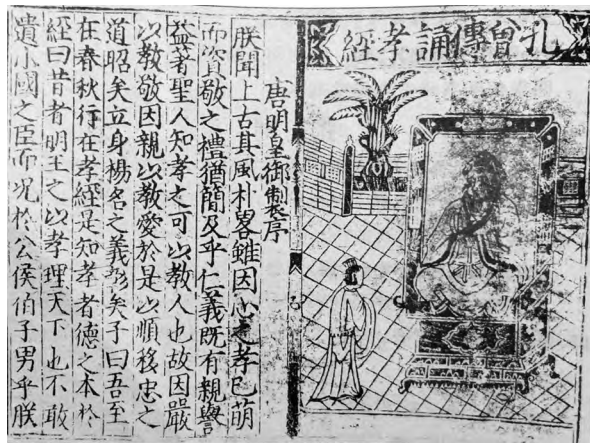 孔曾傳誦孝經
唐明皇御製序
朕聞上古其風朴畧雖因心之孝已萌
而資敬之禮猶簡及乎仁義既有親譽
益著聖人知孝之可以教人也故因嚴
以教敬因親以教愛於是以順移忠之
道昭矣立身楊名之義彰矣子曰吾至
在春秋行在孝經是知孝者德之本於
經曰昔者明王之以孝理天下也不敢
遺小國之臣而况於公侯伯子男乎朕